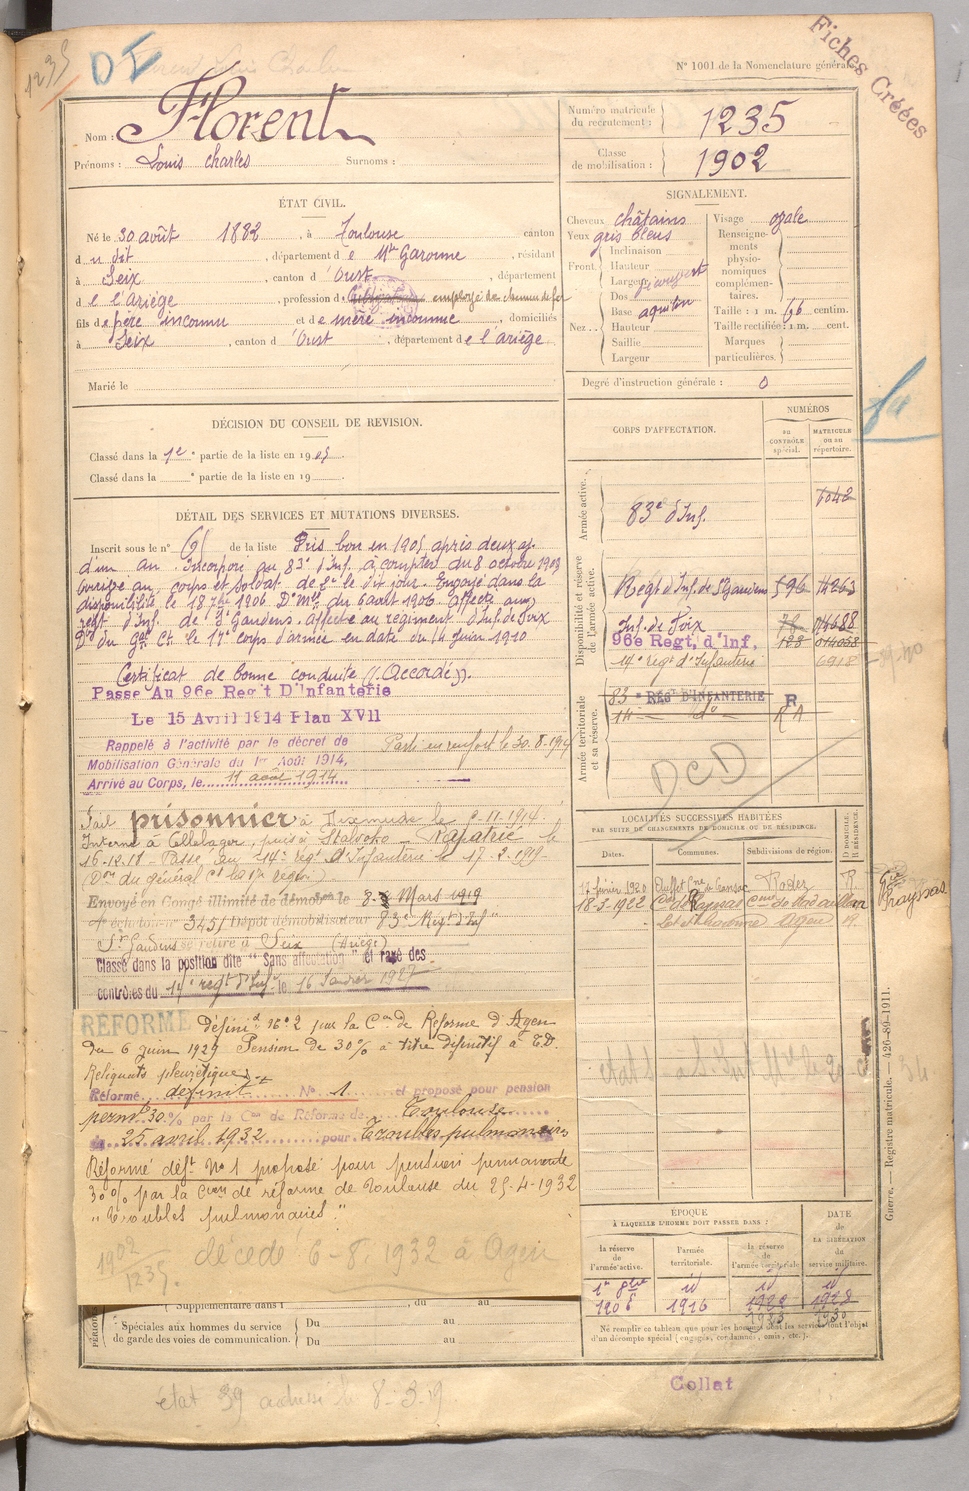 1235
DI
Fiches Créées
N° 1001 de la Nomenclature générale.
Nom : Florent
Prénoms : Louis Charles Surnoms :
Numéro matricule du recrutement : 1235
Classe de mobilisation : 1902
ÉTAT CIVIL.
Né le 30 août 1882, à Toulouse canton
du dit, département de Hte Garonne, résidant
à Seix, canton d'Oust, département
de l'ariège, profession de employé de chemin de fer
fils de père inconnu et de mère inconnue, domiciliés
à Seix, canton d'Oust, département de l'ariège
Marié le
SIGNALEMENT.
Cheveux châtains
Yeux gris bleus
Front.
Inclinaison
Hauteur
Largeur
Dos
Nez.
Base
Hauteur
Saillie
Largeur
Visage ovale
Renseignements physionomiques complémentaires.
Taille : 1 m. 66 centim.
Taille rectifiée : 1 m. cent.
Marques particulières.
Degré d'instruction générale : 0
DÉCISION DU CONSEIL DE REVISION.
Classé dans la 1re partie de la liste en 1905.
Classé dans la e partie de la liste en 19
DÉTAIL DES SERVICES ET MUTATIONS DIVERSES.
Inscrit sous le n° de la liste Pris bon en 1905 après deux aj.
d'un an. Incorporé au 83e d'Inf. à compter du 8 octobre 1905
Arrivé au corps et soldat de 2e le dit jour. Envoyé dans la
disponibilité le 18 7bre 1906 Don Mlle du 6 août 1906 affecté aux
regt d'Inf. de St Gaudens. affecté au régiment d'Inf. de Foix
Don du gal Ct le 17e corps d'armée en date du 14 Juin 1910
Certificat de bonne conduite (Accordé).
Passe Au 96e Reg't D'Infanterie
Le 15 Avril 1914 Plan XVII
Rappelé à l'activité par le décret de
Mobilisation Générale du 1er Août 1914,
Arrivé au Corps, le 11 août 1914
Parti en renfort le 30.8.1914
Fait prisonnier à Dixmude le 11.1914.
Interné à Cellelager, puis à Rapatrié le
16-12-18 - Passé au 14e régt d'Infanterie le 17-2-1919
(Don du général Ct la 17e région)
Envoyé en Congé illimité de démob le 8 Mars 1919
4e échelon n° 3451 Dépôt démobilisateur 83e Régt d'Inf
St Gaudens se retire à Seix (Ariège)
Classé dans la position dite "Sans affectation" et rayé des
contrôles du 14e regt d'Inf le 16 Janvier 1927
REFORMÉ définitt N° 2 par la Con de Réforme d'Agen
du 6 juin 1929 Pension de 30% à titre définitif à T.D.
Reliquats pleurétiques
Réformé définitt N° 1 et proposé pour pension
permte 30 % par la Con de Réforme de Toulouse
du 25 avril 1932 pour Troubles pulmonaires
Réformé déft N° 1 proposé pour pension permanente
30% par la Con de réforme de Toulouse du 25-4-1932
"Troubles pulmonaires"
1902
1235.
décédé 6-8-1932 à Agen
Supplémentaire dans l , du au
Spéciales aux hommes du service de garde des voies de communication.
Du au
Du au
CORPS D'AFFECTATION.
NUMÉROS
au CONTRÔLE spécial.
MATRICULE ou au répertoire.
Armée active.
83e d'Inf.
Disponibilité et réserve de l'armée active.
Regt d'Inf. de St Gaudens 596 14263
Inf. de Foix
96e Regt, d'Inf, 128 014058
14e régt d'Infanterie 6918
Armée territoriale et sa réserve.
83e RÉGT D'INFANTERIE R
14e do RA
DCD
LOCALITÉS SUCCESSIVES HABITÉES
PAR SUITE DE CHANGEMENTS DE DOMICILE OU DE RÉSIDENCE.
D DOMICILE. R RÉSIDENCE.
Dates. Communes. Subdivisions de région.
17 février 1920 Rodez R.
18-3-1922
Agen R.
Gie Prayssas
ÉPOQUE
À LAQUELLE L'HOMME DOIT PASSER DANS :
la réserve de l'armée active.
l'armée territoriale.
la réserve de l'armée territoriale.
DATE de LA LIBÉRATION du service militaire.
1er 8bre id id id
1906 1916 1922 1928
1923 1930
Ne remplir ce tableau que pour les hommes dont les services font l'objet d'un décompte spécial (engagés, condamnés, omis, etc.).
Guerre. — Registre matricule. — 426-89-1911.
Collat
état 39 adressé le 8-3-19